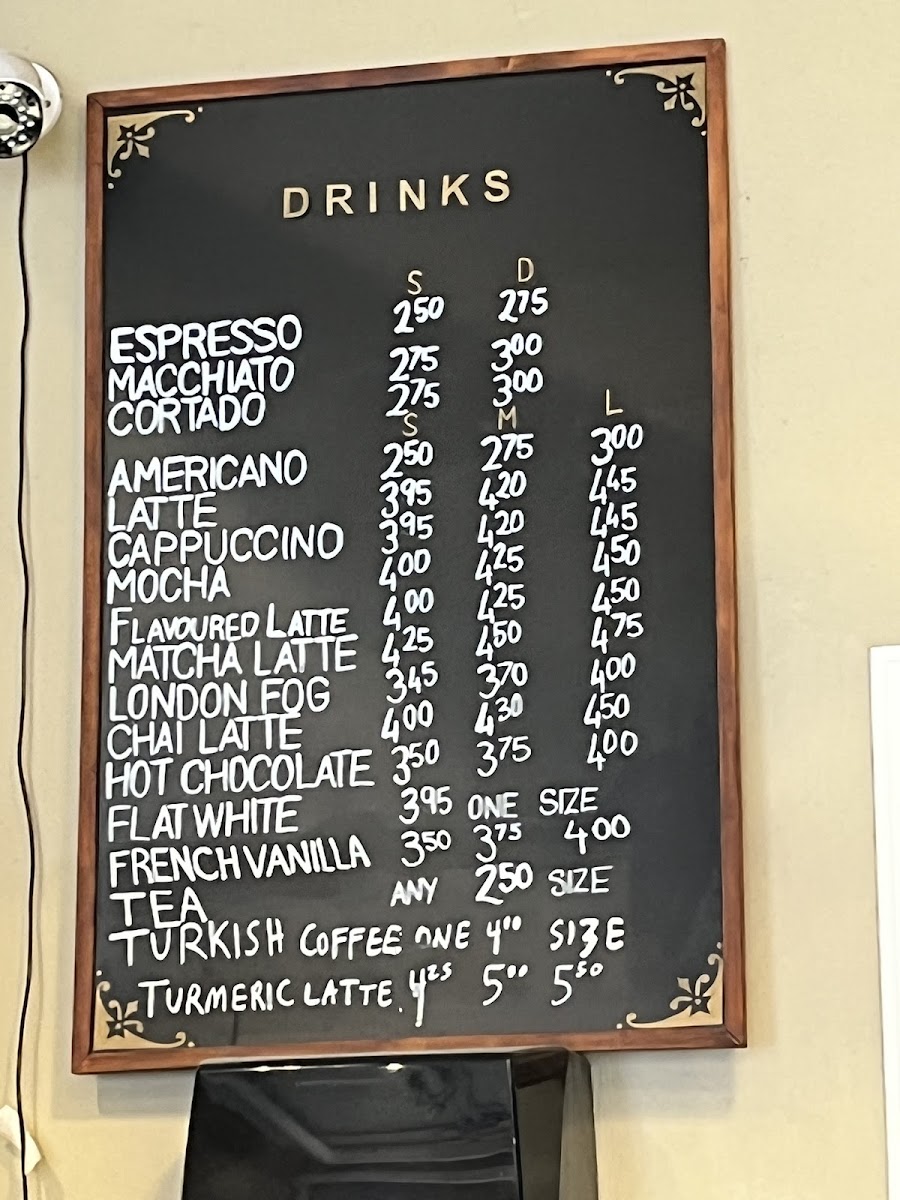 DRINKS
S D
ESPRESSO 2.50 2.75
MACCHIATO 2.75 3.00
CORTADO 2.75 3.00
S M L
AMERICANO 2.50 2.75 3.00
LATTE 3.95 4.20 4.45
CAPPUCCINO 3.95 4.20 4.45
MOCHA 4.00 4.25 4.50
FLAVOURED LATTE 4.00 4.25 4.50
MATCHA LATTE 4.25 4.50 4.75
LONDON FOG 3.45 3.70 4.00
CHAI LATTE 4.00 4.30 4.50
HOT CHOCOLATE 3.50 3.75 4.00
FLAT WHITE 3.95 ONE SIZE
FRENCH VANILLA 3.50 3.75 4.00
TEA ANY 2.50 SIZE
TURKISH COFFEE ONE 4.00 SIZE
TURMERIC LATTE 4.25 5.00 5.50